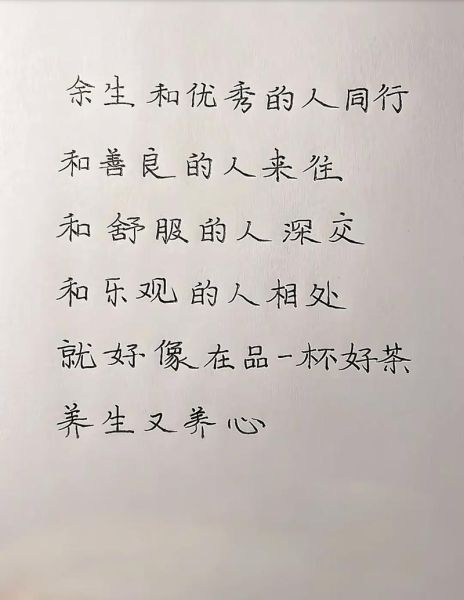 余生和优秀的人同行
和善良的人来往
和舒服的人深交
和乐观的人相处
就好像在品一杯好茶
养生又养心